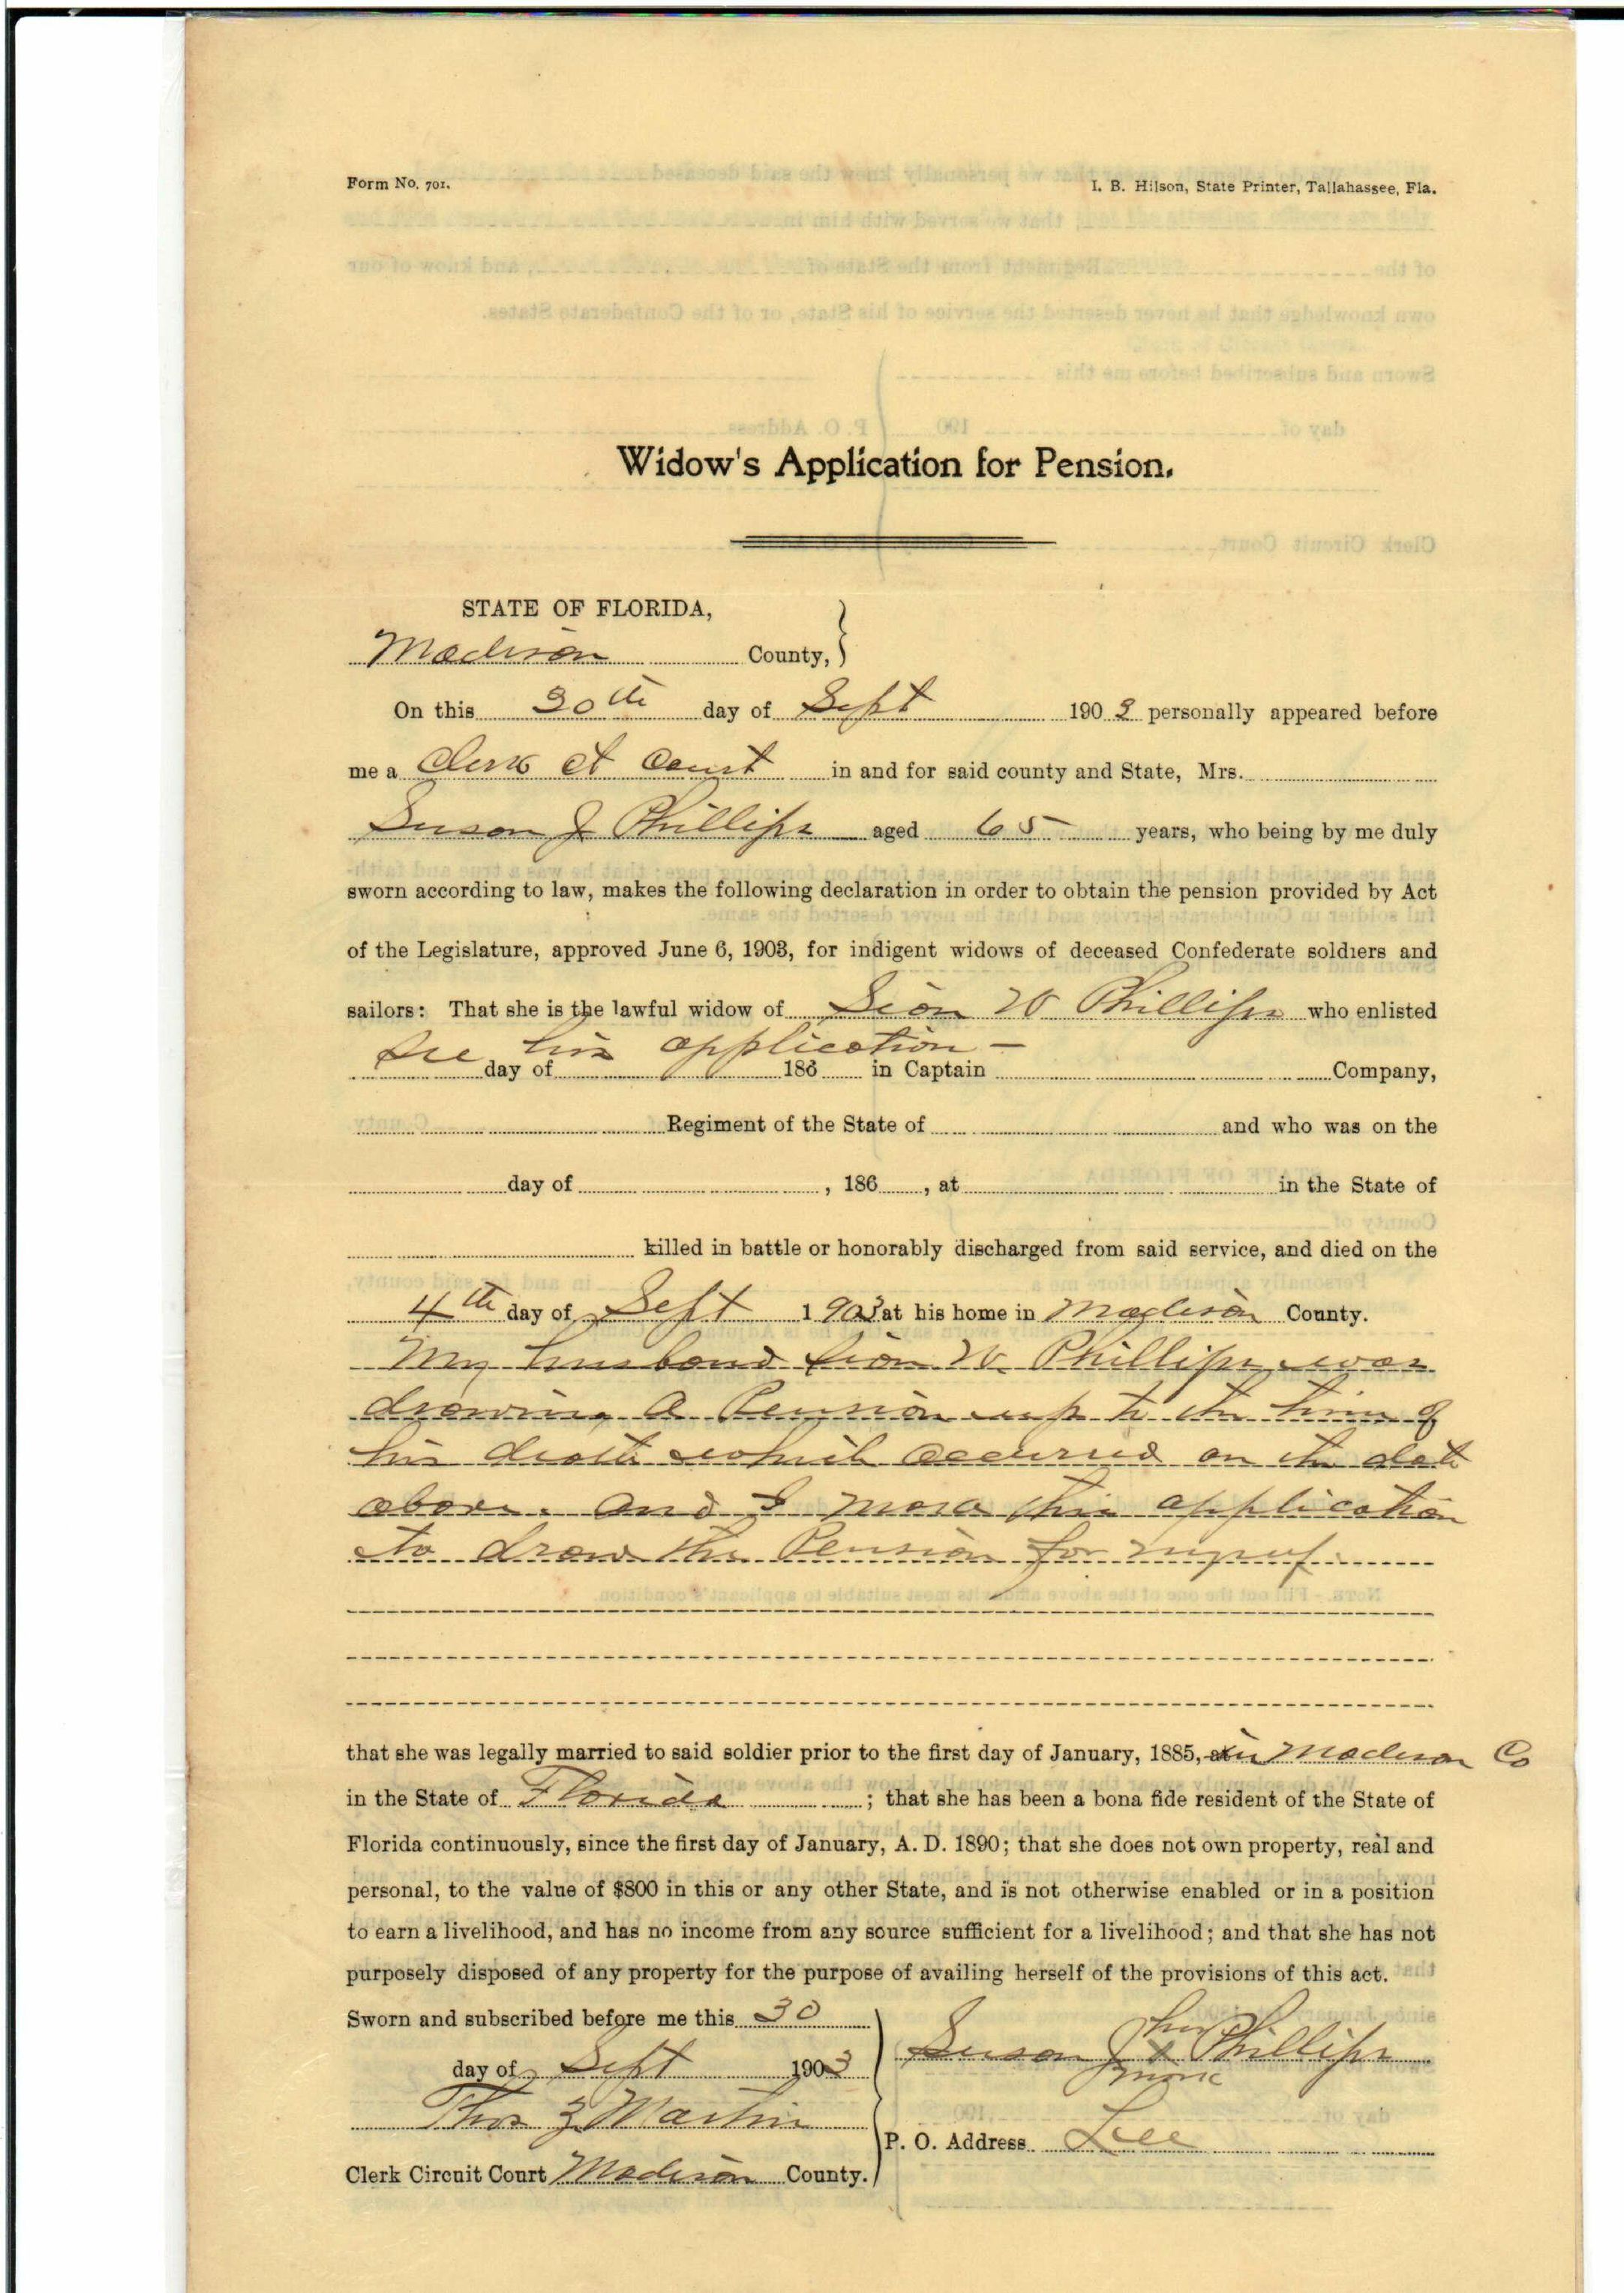 Form No. 701.
I. B. Hilson, State Printer, Tallahassee, Fla.
Widow's Application for Pension.
STATE OF FLORIDA,
Madison County,
On this 30th day of Sept 1903 personally appeared before
me a Clerk Ct Court in and for said county and State, Mrs.
Susan J Phillips aged 65 years, who being by me duly
sworn according to law, makes the following declaration in order to obtain the pension provided by Act
of the Legislature, approved June 6, 1903, for indigent widows of deceased Confederate soldiers and
sailors: That she is the lawful widow of Sion W Phillips who enlisted
see his application —
day of 186 in Captain Company,
Regiment of the State of and who was on the
day of , 186 , at in the State of
killed in battle or honorably discharged from said service, and died on the
4th day of Sept 1903 at his home in Madison County.
My husband Sion W. Phillips was
drawing a Pension up to the time of
his death which occurred on the date
above. and I make this application
to draw the Pension for myself.
that she was legally married to said soldier prior to the first day of January, 1885, in Madison Co
in the State of Florida ; that she has been a bona fide resident of the State of
Florida continuously, since the first day of January, A. D. 1890; that she does not own property, real and
personal, to the value of $800 in this or any other State, and is not otherwise enabled or in a position
to earn a livelihood, and has no income from any source sufficient for a livelihood; and that she has not
purposely disposed of any property for the purpose of availing herself of the provisions of this act.
Sworn and subscribed before me this 30
day of Sept 1903
Thos Z Martin
Clerk Circuit Court Madison County.
her
Susan J x Phillips
mark
P. O. Address Lee